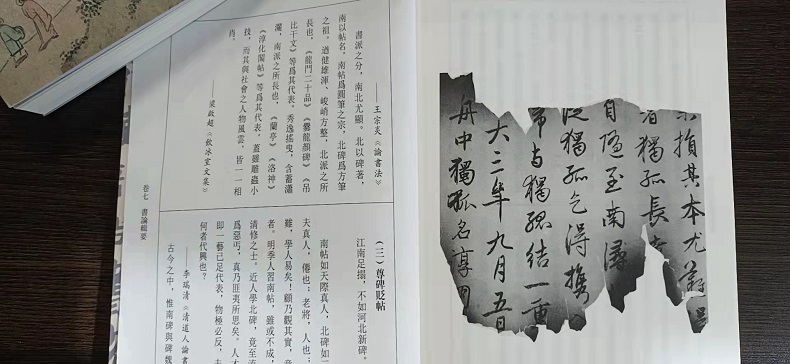 損其本尤難
獨孤長
自隨至南潯
從獨孤乞得攜
与獨孤結一重
大三年九月五日
舟中獨孤名
——王宗炎《論書法》
書派之分，南北尤顯。北以碑著，
南以帖名，南帖爲圓筆之宗，北碑爲方筆
之祖。遒健雄渾、峻峭方整，北派之所
長也，《龍門二十品》《爨龍顔碑》《吊
比干文》等爲其代表。秀逸搖曳，含蓄瀟
灑，南派之所長也，《蘭亭》《洛神》
《淳化閣帖》等爲其代表，蓋雖雕蟲小
技，而其與社會之人物風雲，皆一一相
肖。
——梁啟超《飲冰室文集》
（三）尊碑貶帖
江南足搨，不如河北新碑。
南帖如天際真人，北碑如
夫真人，僊也；老將，人也；
難，學人易矣！顧乃觀其實，
者。明季人習南帖，雖或不成，
清修之士。近人學北碑，竟至流
爲惡丐，真乃匪夷所思矣。人才
即一藝已足代表，物極必反，
何者代興也？
——李瑞清《清道人論書
古今之中，惟南碑與碑魏
卷七 書論輯要